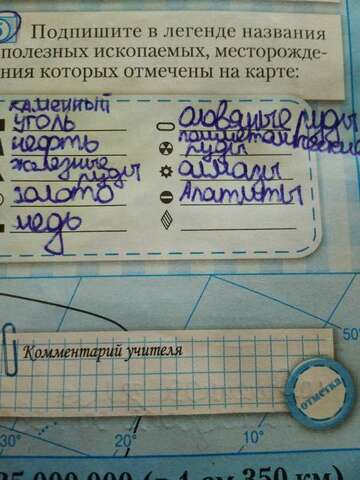 5 Подпишите в легенде названия
полезных ископаемых, месторожде-
ния которых отмечены на карте:
каменный
уголь
нефть
железные
руды
золото
медь
оловяные руды
полиметаллические
руды
алмазы
Апатиты
Комментарий учителя
отметка
50°
30° 20° 10°
35 000 000 (в 1 см 350 км)